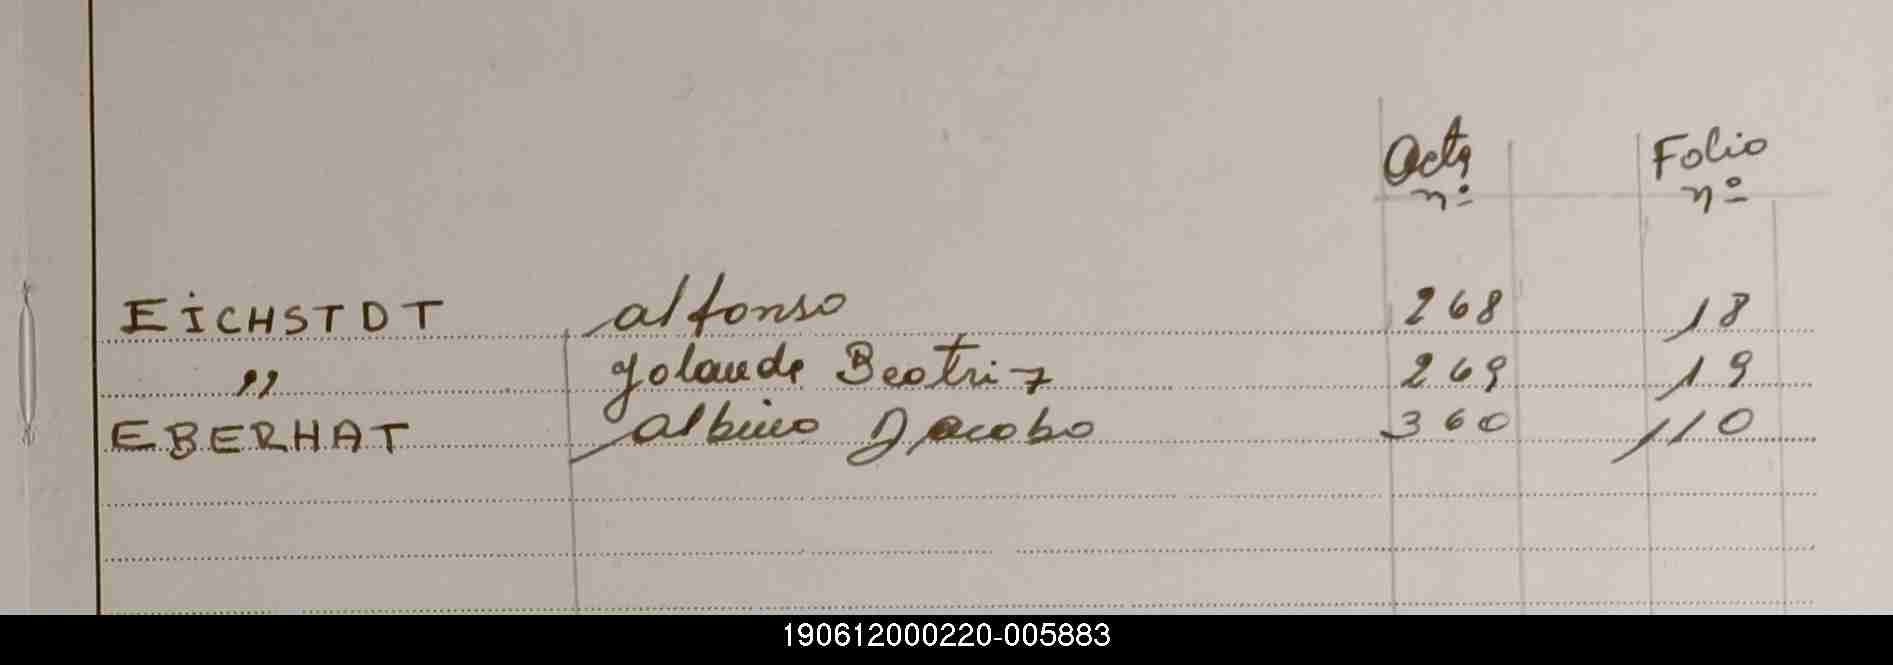 Acta Folio
nº nº
EiCHSTDT alfonso 268 18
" Yolanda Beatriz 269 19
EBERHAT albino Jacobo 360 110
190612000220-005883